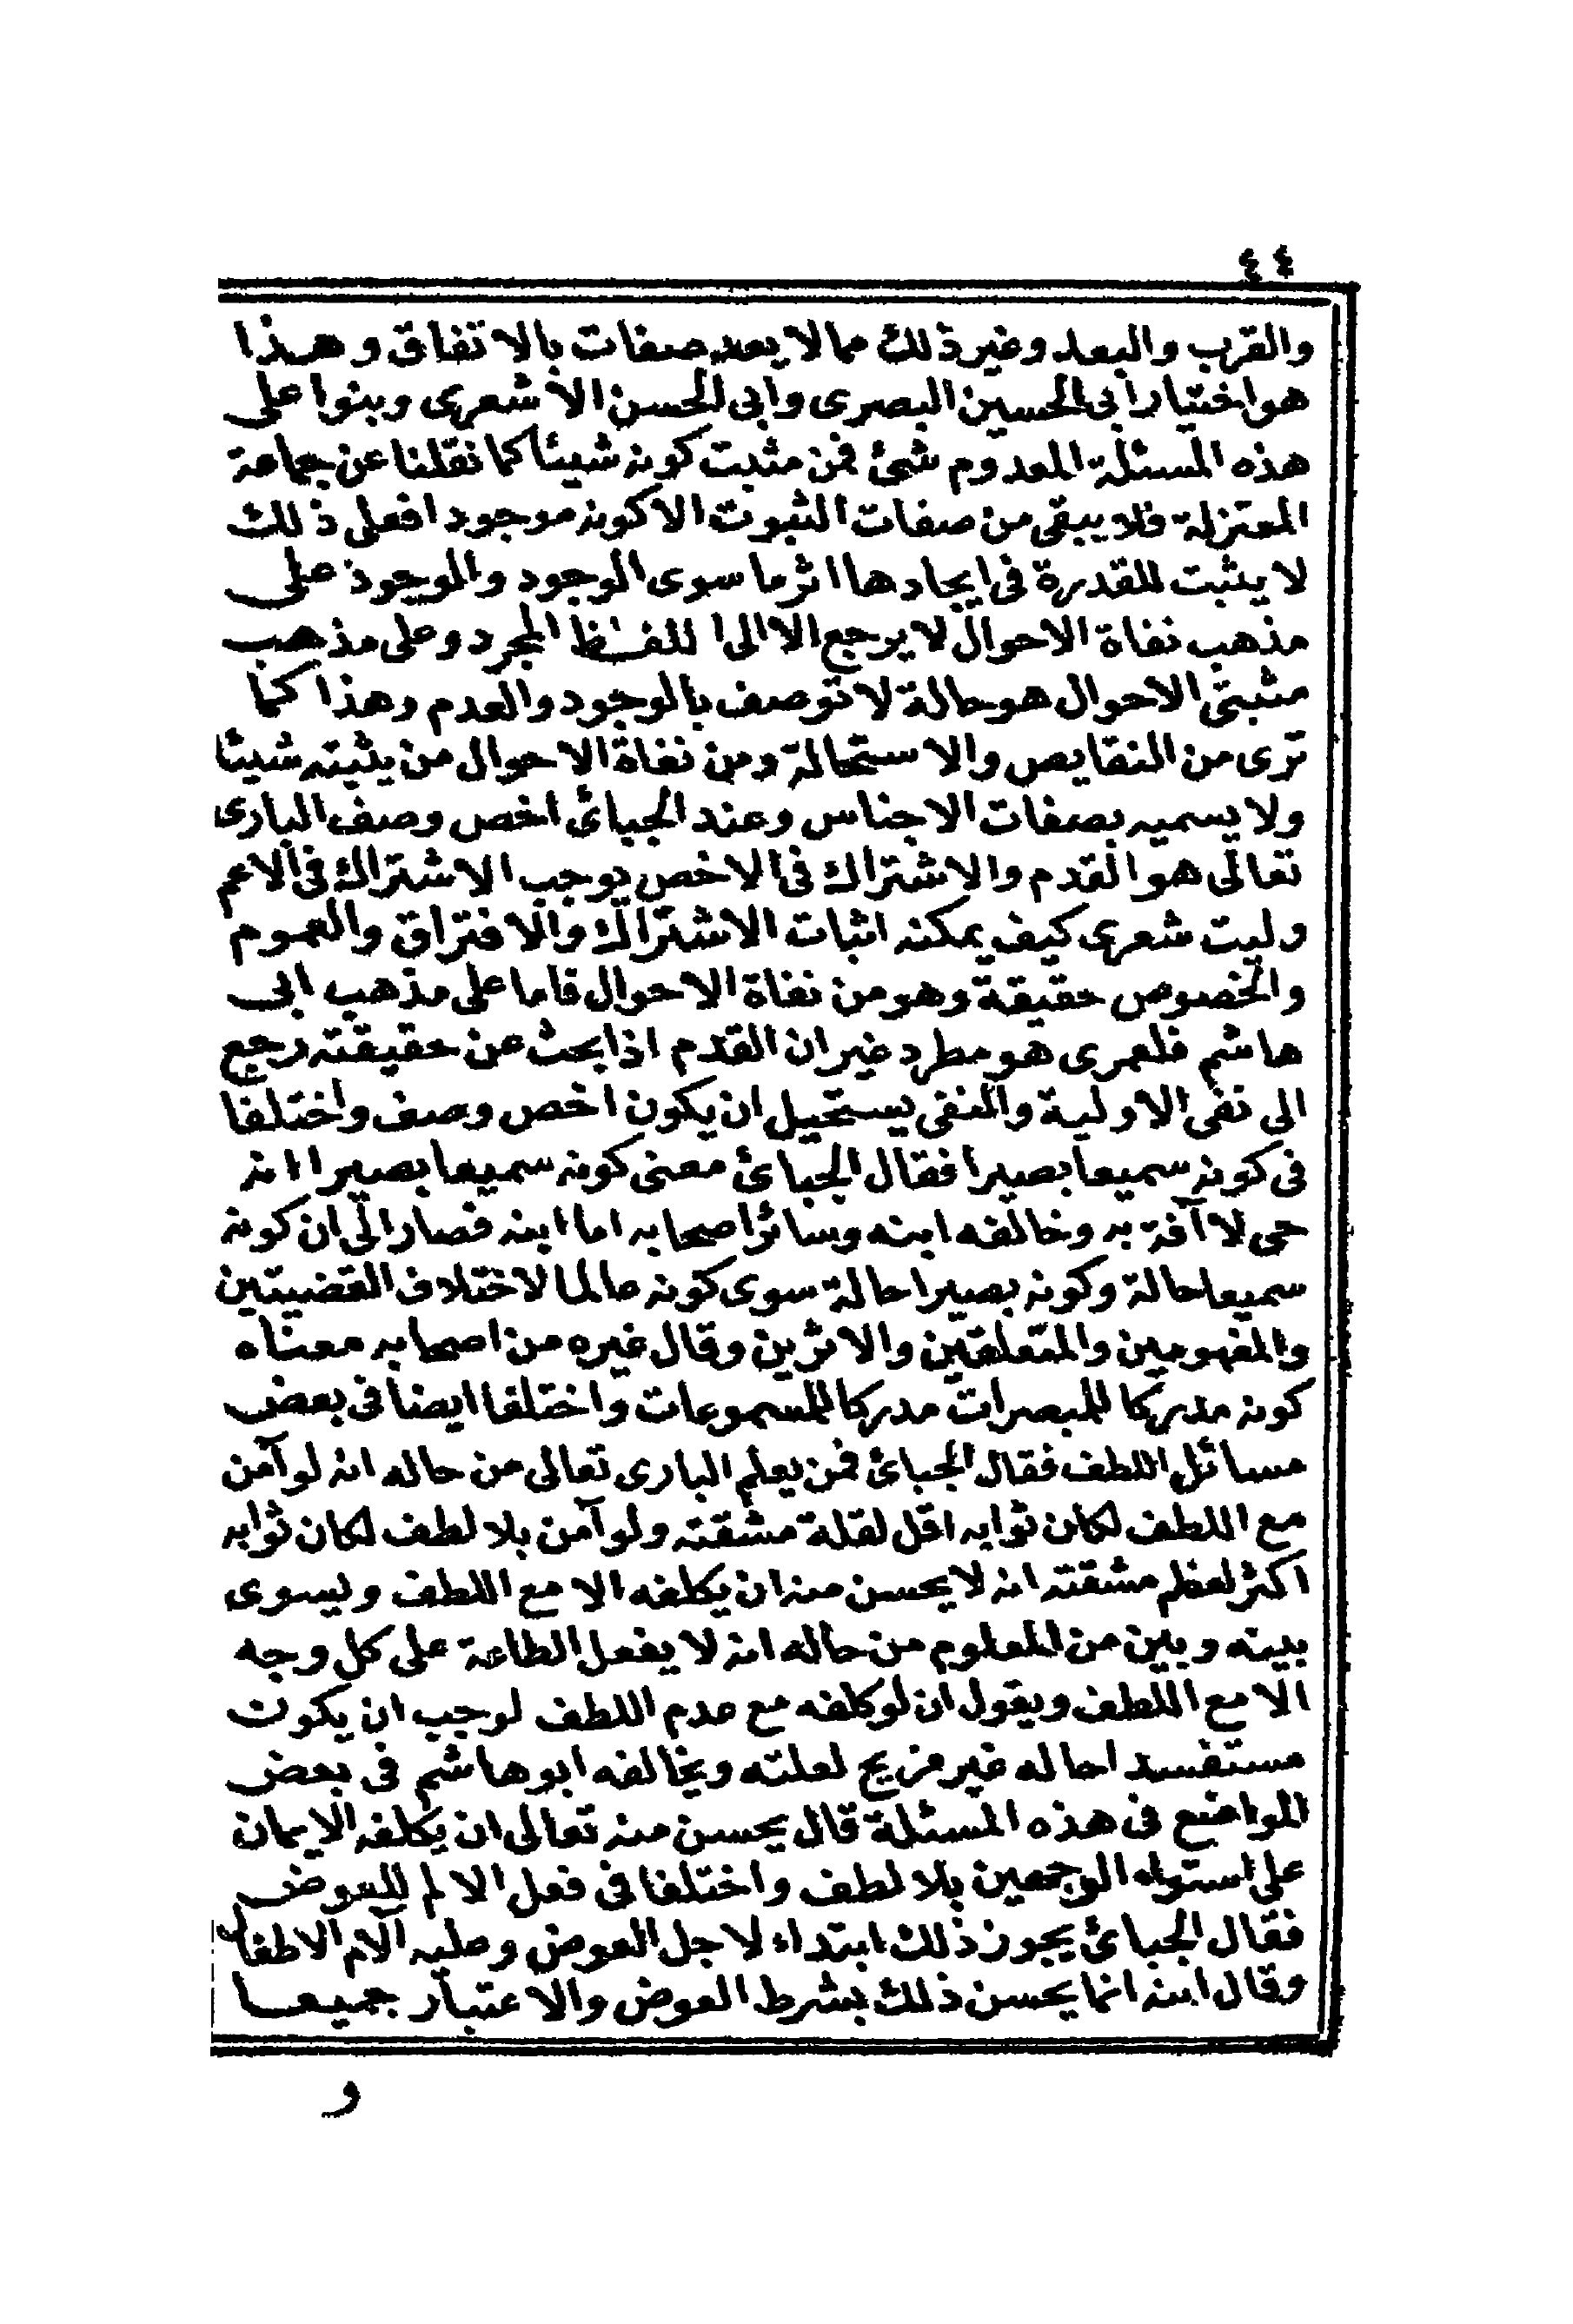 ٤٤
والقرب والبعد وغير ذلك مما لا يعد صفات بالاتفاق وهذا
هو اختيار ابى الحسين البصرى وابى الحسن الاشعرى وبنوا على
هذه المسئلة المعدوم شئ فمن مثبت كونه شيئا كما نقلنا عن جماعة
المعتزلة فلا يبقى من صفات الثبوت الا كونه موجودا فعلى ذلك
لا يثبت للقدرة فى ايجادها اثر ما سوى الوجود والوجود على
مذهب نفاة الاحوال لا يرجع الا الى اللفظ المجرد وعلى مذهب
مثبتى الاحوال هو حالة لا توصف بالوجود والعدم وهذا كما
ترى من النقايص والاستحالة ومن نفاة الاحوال من يثبته شيئا
ولا يسميه بصفات الاجناس وعند الجبائى اخص وصف البارى
تعالى هو القدم والاشتراك فى الاخص يوجب الاشتراك فى الاعم
وليت شعرى كيف يمكنه اثبات الاشتراك والافتراق والعموم
والخصوص حقيقة وهو من نفاة الاحوال فاما على مذهب ابى
هاشم فلعمرى هو مطرد غير ان القدم اذا بحث عن حقيقته رجع
الى نفى الاولية والنفى يستحيل ان يكون اخص وصف واختلفا
فى كونه سميعا بصيرا فقال الجبائى معنى كونه سميعا بصيرا انه
حى لا آفة به وخالفه ابنه وسائر اصحابه اما ابنه فصار الى ان كونه
سميعا حالة وكونه بصيرا حالة سوى كونه عالما لاختلاف القضيتين
والمفهومين والمتعلقين والاثرين وقال غيره من اصحابه معناه
كونه مدركا للمبصرات مدركا للمسموعات واختلفا ايضا فى بعض
مسائل اللطف فقال الجبائى فمن يعلم البارى تعالى من حاله انه لو آمن
مع اللطف لكان ثوابه اقل لقلة مشقته ولو آمن بلا لطف لكان ثوابه
اكثر لعظم مشقته انه لا يحسن منه ان يكلفه الا مع اللطف ويسوى
بينه وبين من المعلوم من حاله انه لا يفعل الطاعة على كل وجه
الا مع اللطف ويقول ان لو كلفه مع عدم اللطف لوجب ان يكون
مستفسدا حاله غير مزيح لعلته ويخالفه ابو هاشم فى بعض
المواضع فى هذه المسئلة قال يحسن منه تعالى ان يكلفه الايمان
على استواء الوجهين بلا لطف واختلفا فى فعل الالم للعوض
فقال الجبائى يجوز ذلك ابتداء لاجل العوض وعليه آلام الاطفال
وقال ابنه انما يحسن ذلك بشرط العوض والاعتبار جميعا
و